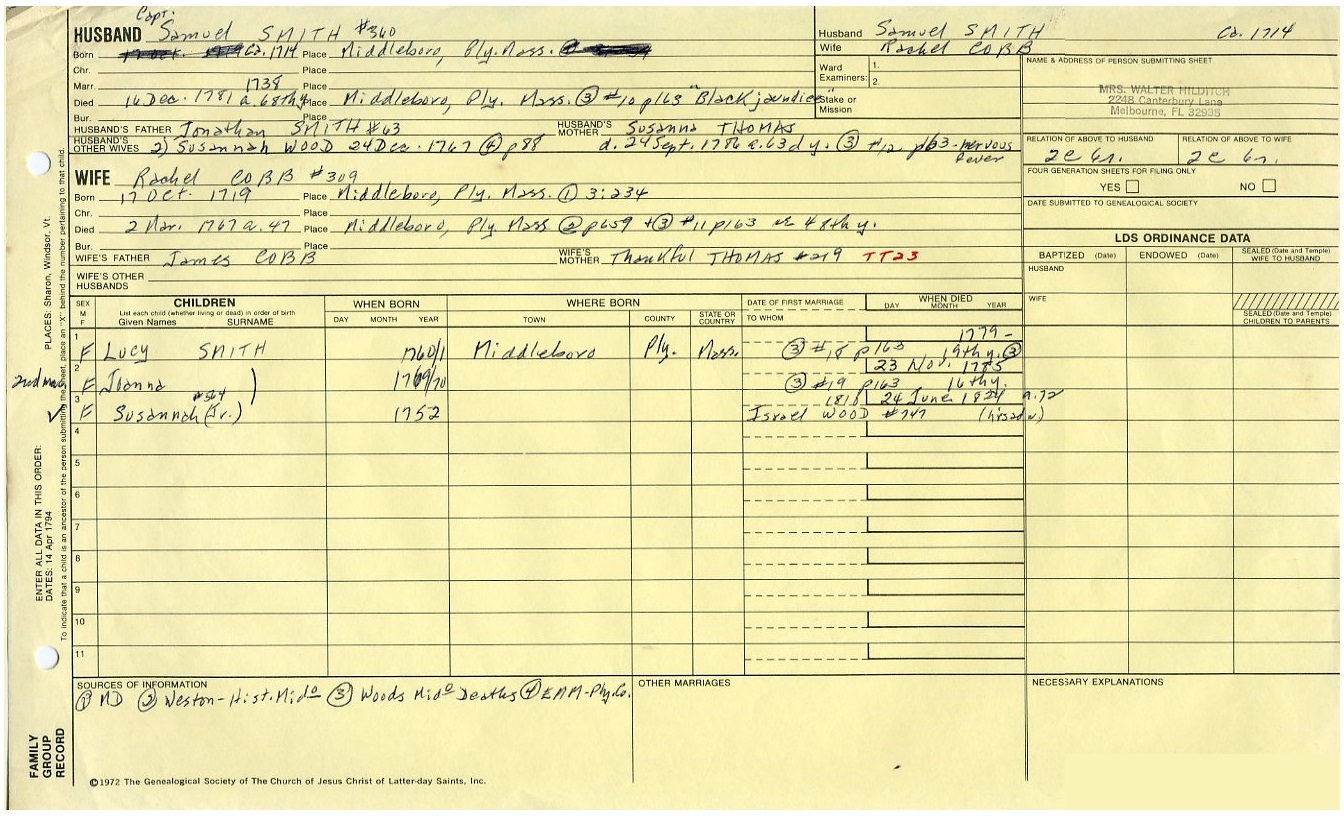 Capt.
HUSBAND Samuel SMITH #360
Born Ca. 1714 Place Middleboro, Ply. Mass.
Chr. Place
Marr. 1738 Place
Died 16 Dec. 1781 a. 68thy Place Middleboro, Ply. Mass. ③ #10 p163 "Black jaundice"
Bur. Place
HUSBAND'S FATHER Jonathan SMITH #63 HUSBAND'S MOTHER Susanna THOMAS
HUSBAND'S OTHER WIVES 2) Susannah WOOD 24 Dec. 1767 ④ p88 d. 24 Sept. 1786 a. 63d y. ③ #12 p163 - nervous fever
WIFE Rachel COBB #309
Born 17 Oct. 1719 Place Middleboro, Ply. Mass. ① 3:234
Chr. Place
Died 2 Mar. 1767 a. 47 Place Middleboro, Ply Mass ② p659 + ③ #11 p163 48th y.
Bur. Place
WIFE'S FATHER James COBB WIFE'S MOTHER Thankful THOMAS #219 TT23
WIFE'S OTHER HUSBANDS
Husband Samuel SMITH Ca. 1714
Wife Rachel COBB
Ward Examiners: 1.
2.
Stake or Mission
NAME & ADDRESS OF PERSON SUBMITTING SHEET
MRS. WALTER HILDITCH
2248 Canterbury Lane
Melbourne, FL 32935
RELATION OF ABOVE TO HUSBAND RELATION OF ABOVE TO WIFE
FOUR GENERATION SHEETS FOR FILING ONLY
YES NO
DATE SUBMITTED TO GENEALOGICAL SOCIETY
LDS ORDINANCE DATA
BAPTIZED (Date) ENDOWED (Date) SEALED (Date and Temple) WIFE TO HUSBAND
HUSBAND
WIFE
SEALED (Date and Temple) CHILDREN TO PARENTS
SEX M F CHILDREN WHEN BORN WHERE BORN DATE OF FIRST MARRIAGE WHEN DIED
List each child (whether living or dead) in order of birth
Given Names SURNAME DAY MONTH YEAR TOWN COUNTY STATE OR COUNTRY TO WHOM DAY MONTH YEAR
1 1779 -
F Lucy SMITH 1760/1 Middleboro Ply. Mass. ③ #18 p163 19thy. ③
2 23 Nov. 1785
2nd mar. F Joanna 1769/70 ③ #19 p163 16thy.
3 #564 1818 24 June 1824 a. 72
✓ F Susannah (Jr.) 1752 Israel WOOD #747
4
5
6
7
8
9
10
11
SOURCES OF INFORMATION
① MD ② Weston-Hist. Mido ③ Woods Mido Deaths ④ EMM-Ply. Co.
OTHER MARRIAGES
NECESSARY EXPLANATIONS
©1972 The Genealogical Society of The Church of Jesus Christ of Latter-day Saints, Inc.
FAMILY GROUP RECORD
ENTER ALL DATA IN THIS ORDER:
DATES: 14 Apr 1794
PLACES: Sharon, Windsor, Vt.
To indicate that a child is an ancestor of the person submitting the sheet, place an "X" behind the number pertaining to that child.